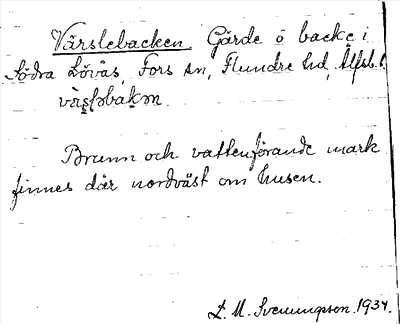 Värslebacken. Gärde o backe i
Södra Lövås, Fors sn, Flundre hd, Älfsb. l.
Brunn och vattenförande mark
finnes där nordväst om husen.
D. M. Svenungson. 1934.